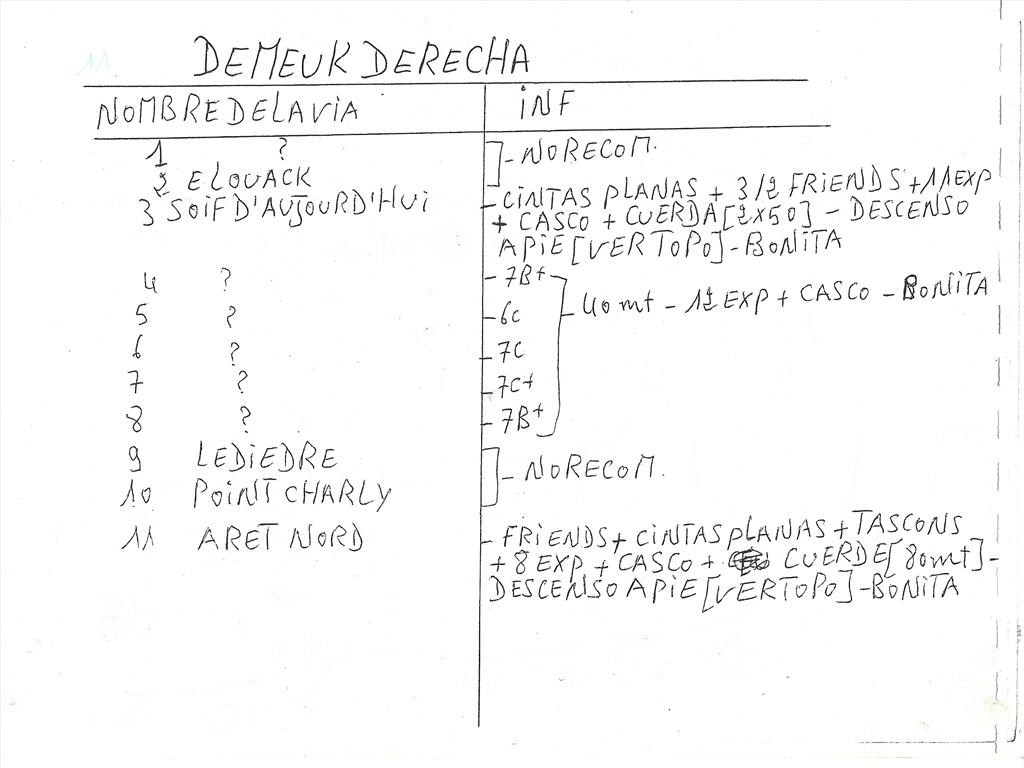 11
DEMEUK DERECHA
NOMBRE DE LA ViA iNF
1 ? - NO RECOM.
2 ELOUACK
3 SOiF D'AUJOURD'HUi - CiNTAS PLANAS + 3/2 FRiENDS + 11 EXP
+ CASCO + CUERDA [2x50] - DESCENSO
A PiE [VER TOPO] - BONiTA
4 ? - 7B+
5 ? - 6c - 40 mt - 12 EXP + CASCO - BONiTA
6 ? - 7C
7 ? - 7C+
8 ? - 7B+
9 LE DiEDRE - NO RECOM.
10 POiNT CHARLY
11 ARET NORD - FRiENDS + CiNTAS PLANAS + TASCONS
+ 8 EXP + CASCO + CUERDE [80 mt] -
DESCENSO A PiE [VER TOPO] - BONiTA